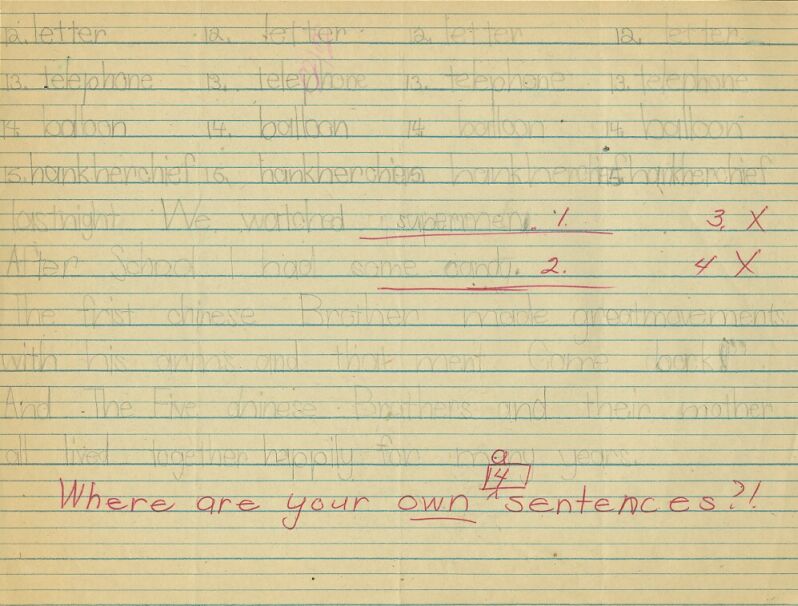 12. letter 12. letter 12. letter 12. letter
13. telephone 13. telephone 13. telephone 13. telephone
14. balloon 14. balloon 14 balloon 14. balloon
15. hankherchief 15. hankherchief 15 hankherchief 15. hankherchief
lastnight We watched supermen. 1. 3. X
After School I had some candy. 2. 4 X
The frist chinese Brother made greatmovements
with his arms and that ment Come back!"
And The Five chinese Brothers and their mother
all lived together happily for many years.
a
14
Where are your own sentences?!